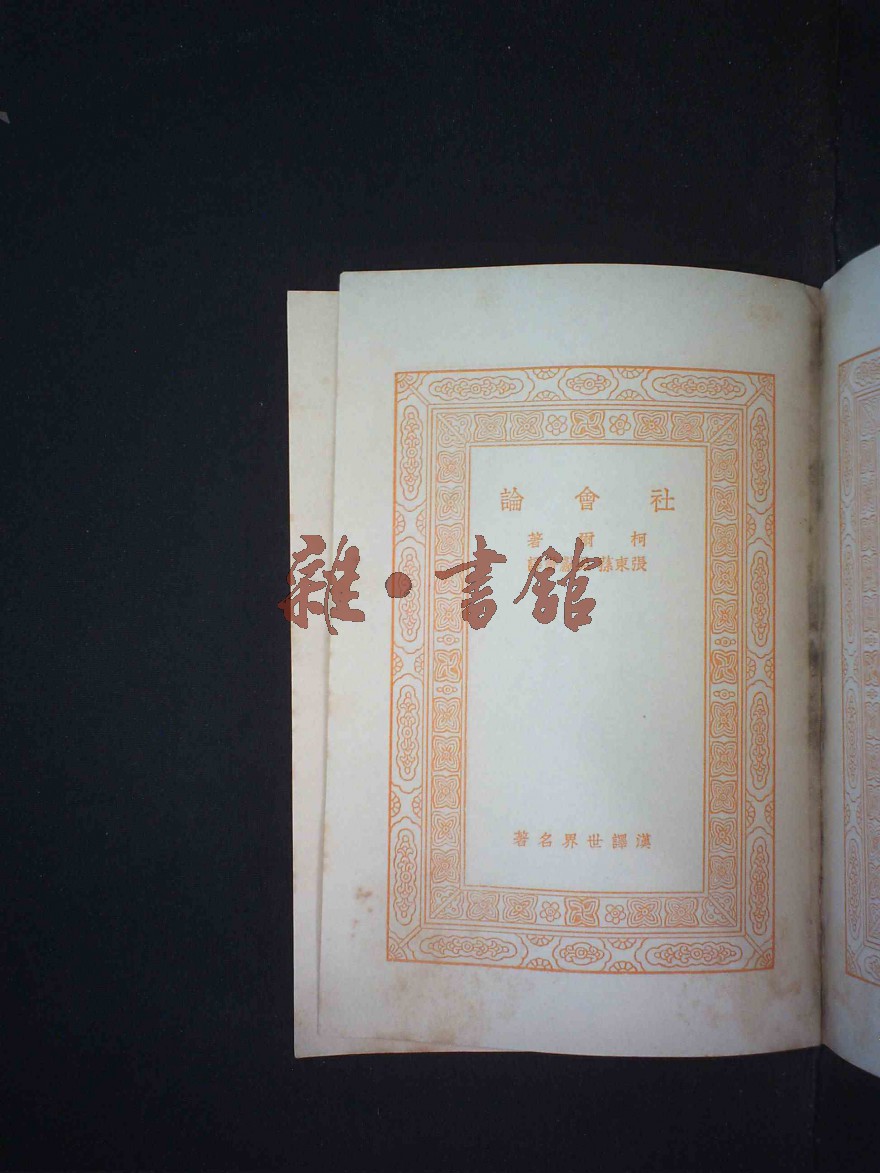 社會論
柯爾著
張東蓀
漢譯世界名著
雜·書館